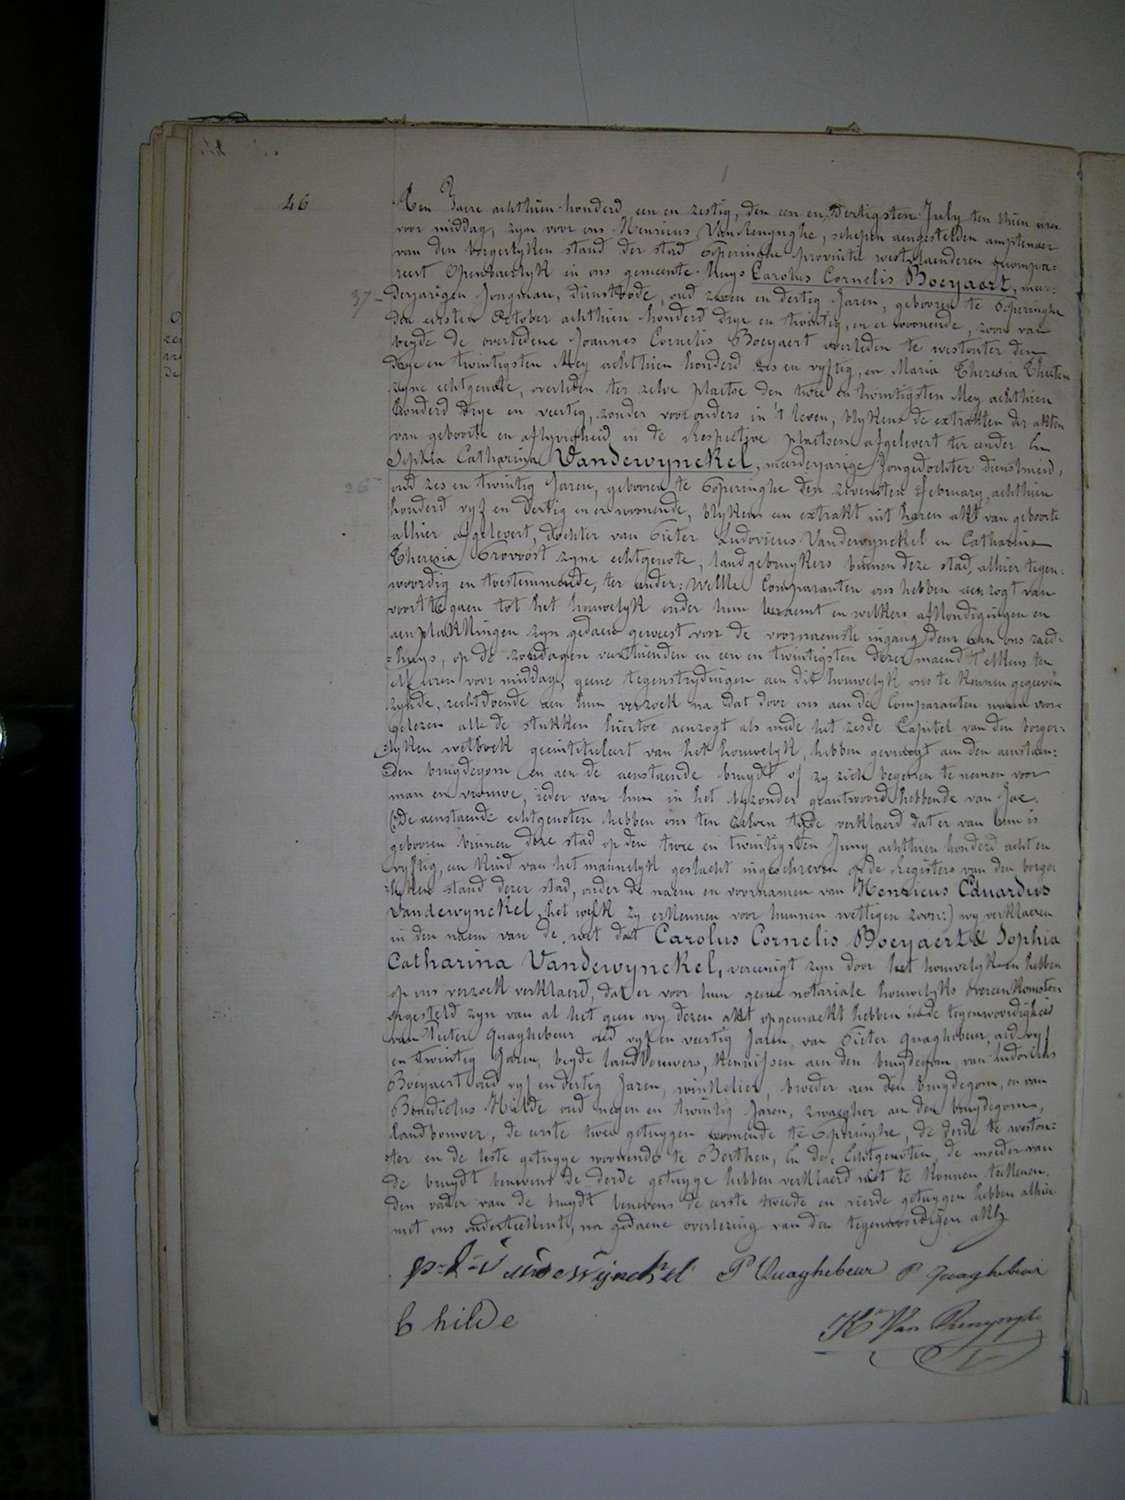 46
Ten Jaere achthien honderd een en zestig, den een en dertigsten July ten thien uren
voor middag, zyn voor ons Henricus Van Renynghe, schepen aengestelden amptenaer
van den borgerlyken stand der stad Poperinghe provintie westvlaenderen gecompa-
reert openbaerlyk in ons gemeente-Huys Carolus Cornelis Boeyaert, meer-
37- derjarigen Jongman, dienstbode, oud zeven en dertig Jaren, geboren te Poperinghe
den eersten October achthien honderd drye en twintig, en er woonende, zoon van
beyde de overledene Joannes Cornelis Boeyaert overleden te westouter den
drye en twintigsten Mey achthien honderd zes en vyftig, en Maria Theresia
zyne echtgenote, overleden ter zelve plaetse den twee en twintigsten Mey achthien
honderd drye en veertig, zonder voorouders in 't leven, blykens de extrakten der akten
van geboorte en aflyvigheid in de Respective plaetsen afgelevert ter eender En
Sophia Catharina Vandewynckel, meerderjarige Jongedochter dienstmeid,
26- oud zes en twintig Jaren, geboren te Poperinghe den zevensten february achthien
honderd vyf en dertig en er woonende, blykens een extrakt uit haren akt van geboorte
alhier afgelevert, dochter van Pieter Ludovicus Vandewynckel en Catharina
Theresia Provoost zyne echtgenote, landgebruykers binnen deze stad, alhier tegen-
woordig en toestemmende, ter ander: Welke Comparanten ons hebben aenzogt van
voort te gaen tot het houwelyk onder hun beraemt en welkers afkondigingen en
aenplakkingen zyn gedaen geweest voor de voornaemste ingang deur van ons raed-
huys, op de zondagen veerthienden en een en twintigsten dezer maend t'elkens ten
elf uren voor middag, geene tegenstrydingen aen dit houwelyk ons te kennen gegeven
zynde, rechtdoende aen hun verzoek na dat door ons aen de Comparanten waren voor
gelezen alle de stukken hiertoe aenzogt als mede het zesde Capitel van den borger-
lyken wetboek geintituleert van het houwelyk, hebben gevraegt aen den aenstaen-
den bruydegom en aen de aenstaende bruydt of zy zich begeeren te nemen voor
man en vrouwe, ieder van hun in het byzonder geantwoord hebbende van Jae.
(:De aenstaende echtgenoten hebben ons ten zelven tyde verklaerd dat er van hun is
gebooren binnen deze stad op den twee en twintigsten Juny achthien honderd acht en
vyftig, een kind van het mannelyk geslacht ingeschreven op de Registers van den borger
lyken stand dezer stad, onder de naem en voornamen van Henricus Eduardus
Vandewynckel, het welk zy erkennen voor hunnen wettigen zoon:) wy verklaeren
in den naem van de wet dat Carolus Cornelis Boeyaert & Sophia
Catharina Vandewynckel, vereenigt zyn door het houwelyk en hebben
op ons verzoek verklaerd, dat er voor hun geene notariale houwelyks overeenkomsten
opgesteld zyn van al het geen wy dezen akt opgemaekt hebben in de tegenwoordigheid
van Pieter Quaghebeur oud vyf en veertig Jaren, van Pieter Quaghebeur, oud vyf
en twintig Jaren, beyde landbouwers, kennissen aen den bruydegom, van Ludovicus
Boeyaert oud vyf en dertig Jaren, winkelier, broeder aen den bruydegom, en van
Benedictus Hilde oud negen en twintig Jaren, zwaegher aen den bruydegom,
landbouwer, de eerste twee getuygen woonende te Poperinghe, de derde te westou-
ter en de leste getuyge woonende te Berthen, En de Echtgenoten, de moeder van
de bruydt benevens de derde getuyge hebben verklaerd niet te konnen teekenen,
den vader van de bruydt benevens de eerste tweede en vierde getuygen hebben alhier
met ons onderteekent, na gedaene overlezing van den tegenwoordigen akt
p-L-Vandewynckel P Quaghebeur P Quaghebeur
b hilde
Hi Van Renynghe